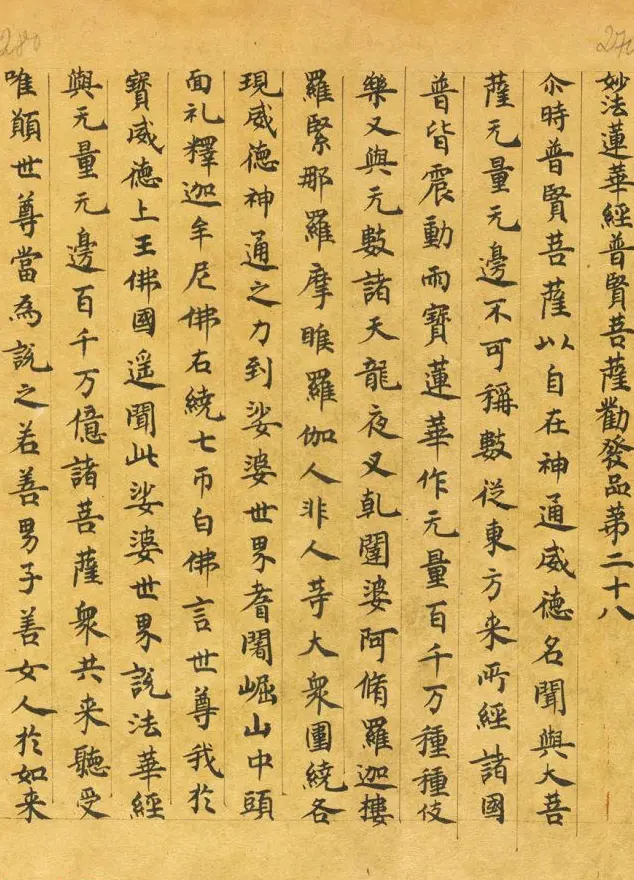 妙法蓮華經普賢菩薩勸發品第二十八
尒時普賢菩薩以自在神通威德名聞與大菩
薩无量无邊不可稱數從東方来所經諸國
普皆震動雨寶蓮華作无量百千万種種伎
樂又與无數諸天龍夜叉乹闥婆阿脩羅迦樓
羅緊那羅摩睺羅伽人非人等大衆圍繞各
現威德神通之力到娑婆世界耆闍崛山中頭
面礼釋迦牟尼佛右繞七帀白佛言世尊我於
寶威德上王佛國遥聞此娑婆世界說法華經
與无量无邊百千万億諸菩薩衆共来聽受
唯願世尊當為說之若善男子善女人於如来
280